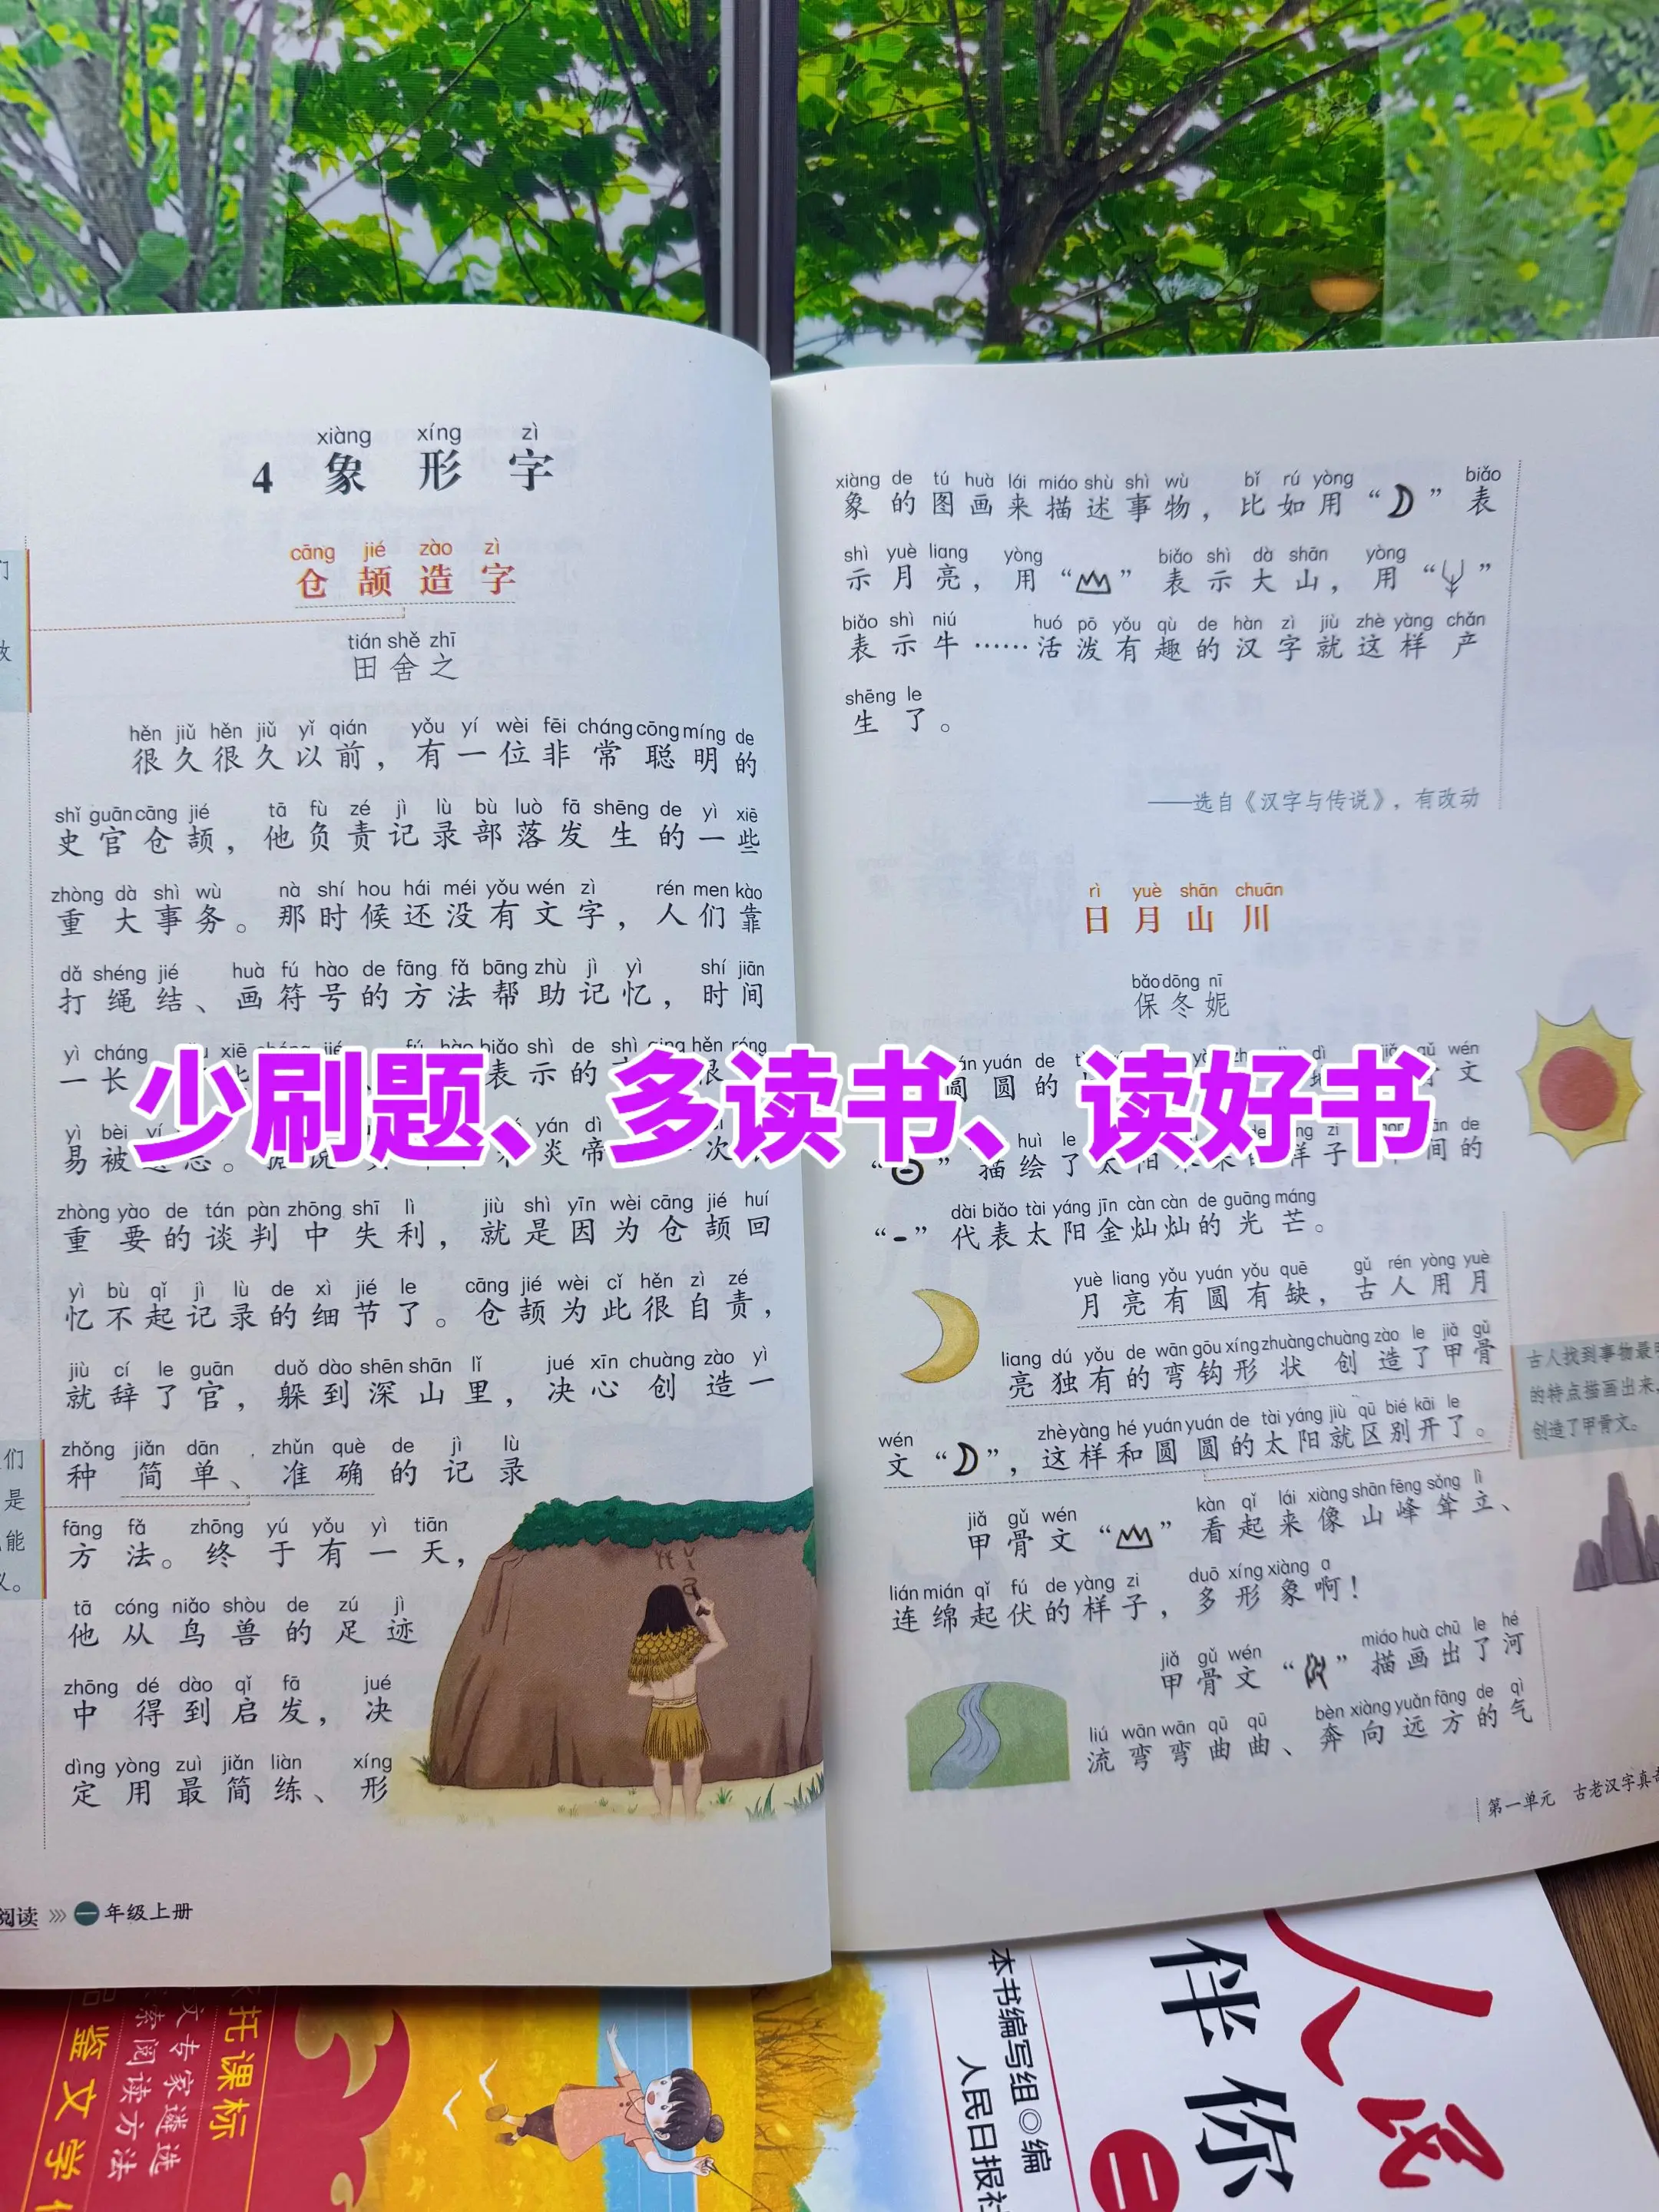 xiàng xíng zì
4 象形字
cāng jié zào zì
仓颉造字
tián shě zhī
田舍之
hěn jiǔ hěn jiǔ yǐ qián yǒu yí wèi fēi cháng cōng míng de
很久很久以前，有一位非常聪明的
shǐ guān cāng jié tā fù zé jì lù bù luò fā shēng de yì xiē
史官仓颉，他负责记录部落发生的一些
zhòng dà shì wù nà shí hou hái méi yǒu wén zì rén men kào
重大事务。那时候还没有文字，人们靠
dǎ shéng jié huà fú hào de fāng fǎ bāng zhù jì yì shí jiān
打绳结、画符号的方法帮助记忆，时间
yì cháng
一长
表示的
yì bèi
易被
yán dì
炎帝
次
zhòng yào de tán pàn zhōng shī lì jiù shì yīn wèi cāng jié huí
重要的谈判中失利，就是因为仓颉回
yì bù qǐ jì lù de xì jié le cāng jié wèi cǐ hěn zì zé
忆不起记录的细节了。仓颉为此很自责，
jiù cí le guān duǒ dào shēn shān lǐ jué xīn chuàng zào yì
就辞了官，躲到深山里，决心创造一
zhǒng jiǎn dān zhǔn què de jì lù
种简单、准确的记录
fāng fǎ zhōng yú yǒu yì tiān
方法。终于有一天，
tā cóng niǎo shòu de zú jì
他从鸟兽的足迹
zhōng dé dào qǐ fā jué
中得到启发，决
dìng yòng zuì jiǎn liàn xíng
定用最简练、形
阅读 一年级上册
xiàng de tú huà lái miáo shù shì wù bǐ rú yòng biǎo
象的图画来描述事物，比如用“ ”表
shì yuè liang yòng biǎo shì dà shān yòng
示月亮，用“ ”表示大山，用“ ”
biǎo shì niú huó pō yǒu qù de hàn zì jiù zhè yàng chǎn
表示牛……活泼有趣的汉字就这样产
shēng le
生了。
——选自《汉字与传说》，有改动
rì yuè shān chuān
日月山川
bǎo dōng nī
保冬妮
yuán de
圆圆的
文
huì le
“ ”描绘了太阳
间的
dài biǎo tài yáng jīn càn càn de guāng máng
“ ”代表太阳金灿灿的光芒。
yuè liang yǒu yuán yǒu quē gǔ rén yòng yuè
月亮有圆有缺，古人用月
liang dú yǒu de wān gōu xíng zhuàng chuàng zào le jiǎ gǔ
亮独有的弯钩形状创造了甲骨
wén zhè yàng hé yuán yuán de tài yáng jiù qū bié kāi le
文“ ”，这样和圆圆的太阳就区别开了。
jiǎ gǔ wén kàn qǐ lái xiàng shān fēng sǒng lì
甲骨文“ ”看起来像山峰耸立、
lián mián qǐ fú de yàng zi duō xíng xiàng a
连绵起伏的样子，多形象啊！
jiǎ gǔ wén miáo huà chū le hé
甲骨文“ ”描画出了河
liú wān wān qū qū bèn xiàng yuǎn fāng de qì
流弯弯曲曲、奔向远方的气
古人找到事物最
的特点描画出来，
创造了甲骨文。
第一单元 古老汉字真
少刷题、多读书、读好书
托课标
文专家遴选
索阅读方法
品鉴文学
本书编写组◎编
人民日报社
人民
伴你
二